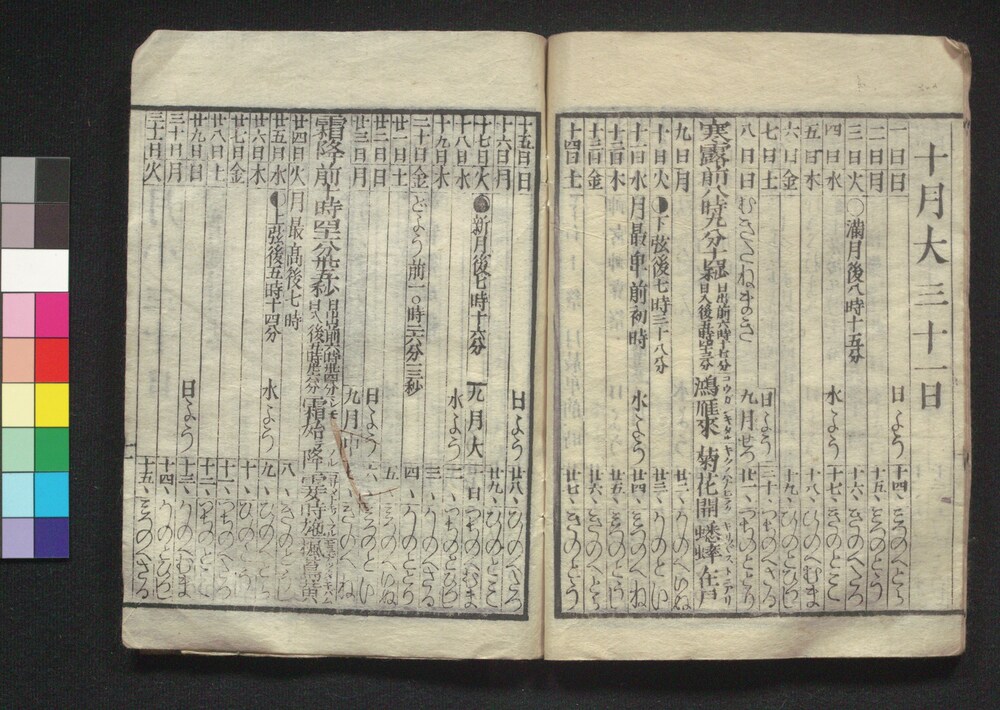 十月大三十一日
一日日 日よう 十四、みつのへとら
二日月 十五、みつのとう
三日火 ○満月後八時十五分 十六、きのへたつ
四日水 水よう 十七、きのとみ
五日木 十八、ひのへむま
六日金 十九、ひのとひつじ
七日土 二十、つちのへさる
八日日 むぎたねまき 日よう 九月せつ 廿一、つちのととり
寒露前八時九分十秒 日出前六時十七分 日入後五時四十三分 鴻雁来 菊花開 蟋蟀在戸
九日月 廿二、かのへいぬ
十日火 下弦後七時三十八分 廿三、かのとい
十一日水 月最卑前初時 水よう 廿四、みつのへね
十二日木 廿五、みつのとうし
十三日金 廿六、きのへとら
十四日土 廿七、きのとう
十五日日 日よう 廿八、ひのへたつ
十六日月 廿九、ひのとみ
十七日火 ●新月後七時十六分 九月大 一日つちのへむま
十八日水 水よう 二、つちのとひつじ
十九日木 三、かのへさる
二十日金 どよう前一〇時二六分三秒 四、かのととり
廿一日土 五、みつのへいぬ
廿二日日 日よう 六、みつのとい
廿三日月 九月中 きのへね
霜降前 霜始降 霎時施 楓蔦黄
廿四日火 月最高後七時 八、きのとうし
廿五日水 上弦後五時十四分 水よう 九、ひのへとら
廿六日木 十、ひのとう
廿七日金 十一、つちのへたつ
廿八日土 十二、つちのとみ
廿九日日 日よう 十三、かのへむま
三十日月 十四、かのとひつじ
三十一日火 十五、みつのへさる